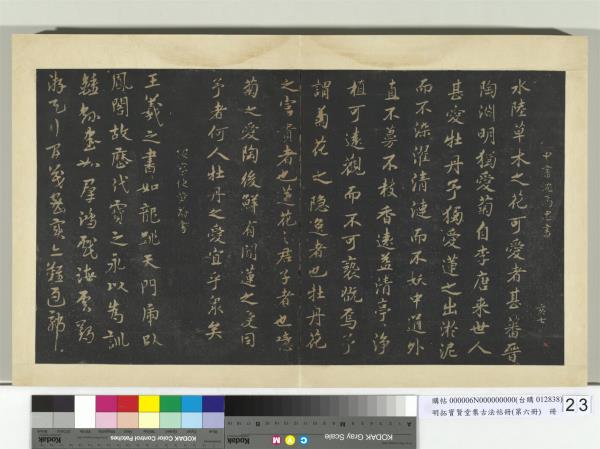 中書沈書
水陸草木之花可愛者甚蕃晉
陶淵明獨愛菊自李唐来世人
甚愛牡丹予獨愛蓮之出淤泥
而不染濯清漣而不妖中通外
直不蔓不枝香遠益清亭〻淨
植可遠觀而不可褻翫焉予
謂菊花之隱逸者也牡丹花
之富貴者也蓮花之君子者也噫
菊之愛陶後鮮有聞蓮之愛同
予者何人牡丹之愛宜乎眾矣
王羲之書如龍跳天門虎臥
鳳閣故歷代寶之永以為訓
鍾繇書如羣鴻戲海雲鶴
游天行
購帖 000006N000000000(台購 012838)
明拓寶賢堂集古法帖冊(第六冊) 冊
23
KODAK Color Control Patches
Kodak
KODAK Gray Scale
C Y M
Kodak